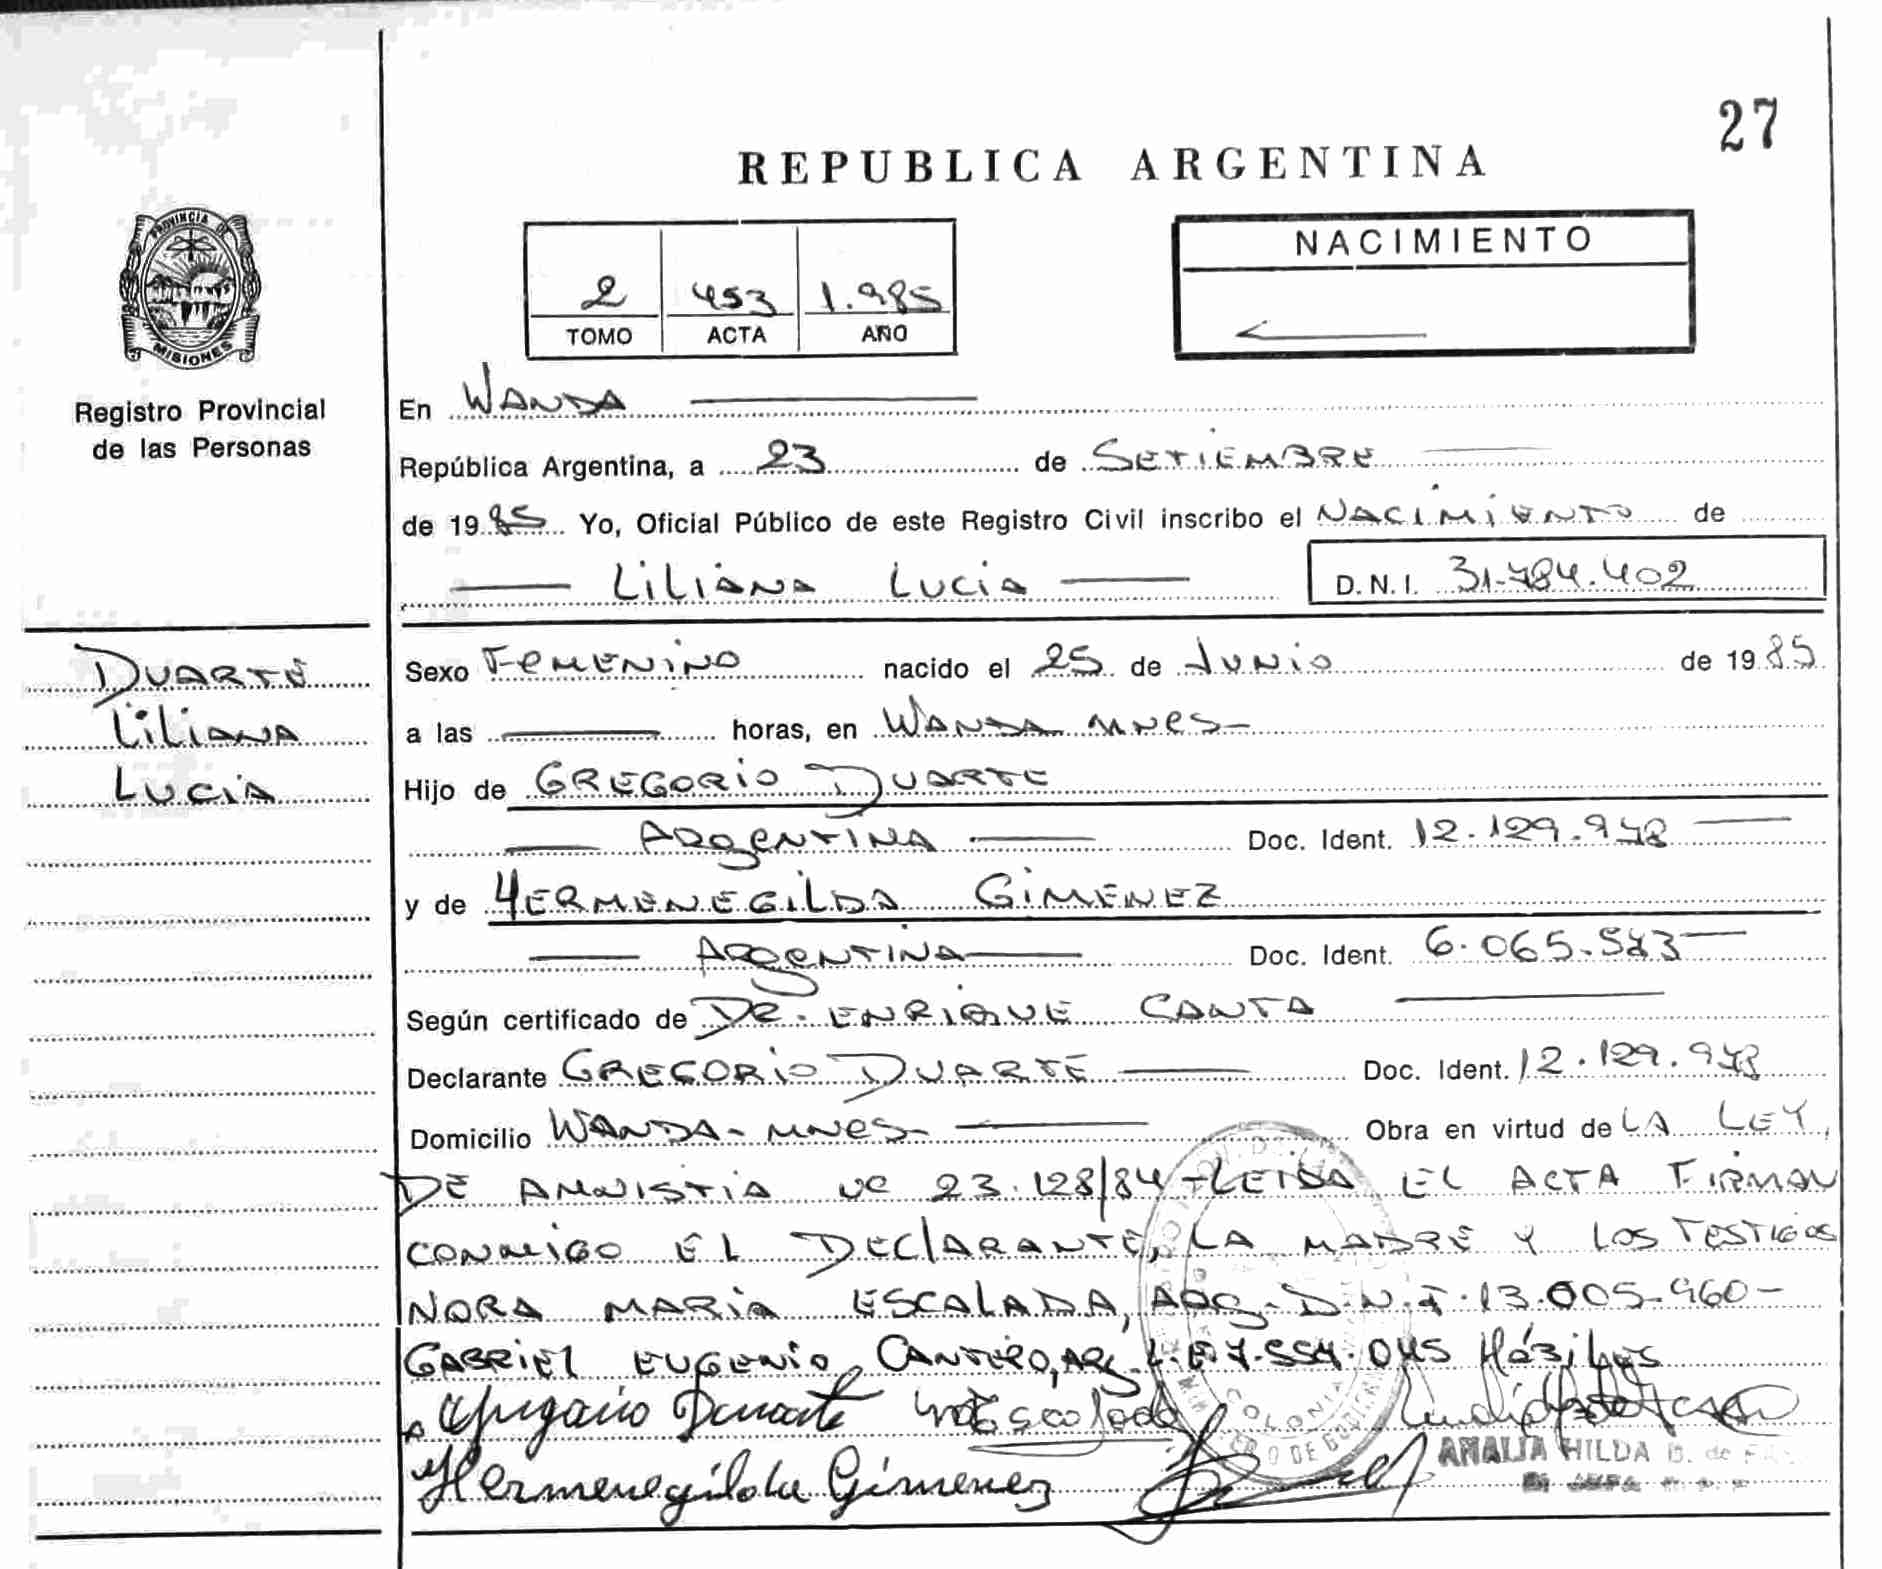 27
REPUBLICA ARGENTINA
PROVINCIA DE
MISIONES
Registro Provincial
de las Personas
2 453 1.985
TOMO ACTA AÑO
NACIMIENTO
En WANDA
República Argentina, a 23 de SETIEMBRE
de 1985 Yo, Oficial Público de este Registro Civil inscribo el NACIMIENTO de
LILIANA LUCIA D.N.I. 31.784.402
DUARTE
LILIANA
LUCIA
Sexo FEMENINO nacido el 25 de JUNIO de 1985
a las horas, en WANDA MNES-
Hijo de GREGORIO DUARTE
ARGENTINA Doc. Ident. 12.129.978
y de HERMENEGILDA GIMENEZ
ARGENTINA Doc. Ident. 6.065.583
Según certificado de DR. ENRIQUE CANTA
Declarante GREGORIO DUARTE Doc. Ident. 12.129.978
Domicilio WANDA-MNES- Obra en virtud de LA LEY
DE AMNISTIA Nº 23.128/84-LEIDA EL ACTA FIRMAN
CONMIGO EL DECLARANTE, LA MADRE Y LOS TESTIGOS
NORA MARIA ESCALADA, ARG-D.N.I.13.005.960-
GABRIEL EUGENIO CANTERO, ARG. L.E.7.554.045 Hábiles
Duarte Escalada
Hermenegilda Gimenez
AMALIA HILDA de
COLONIA